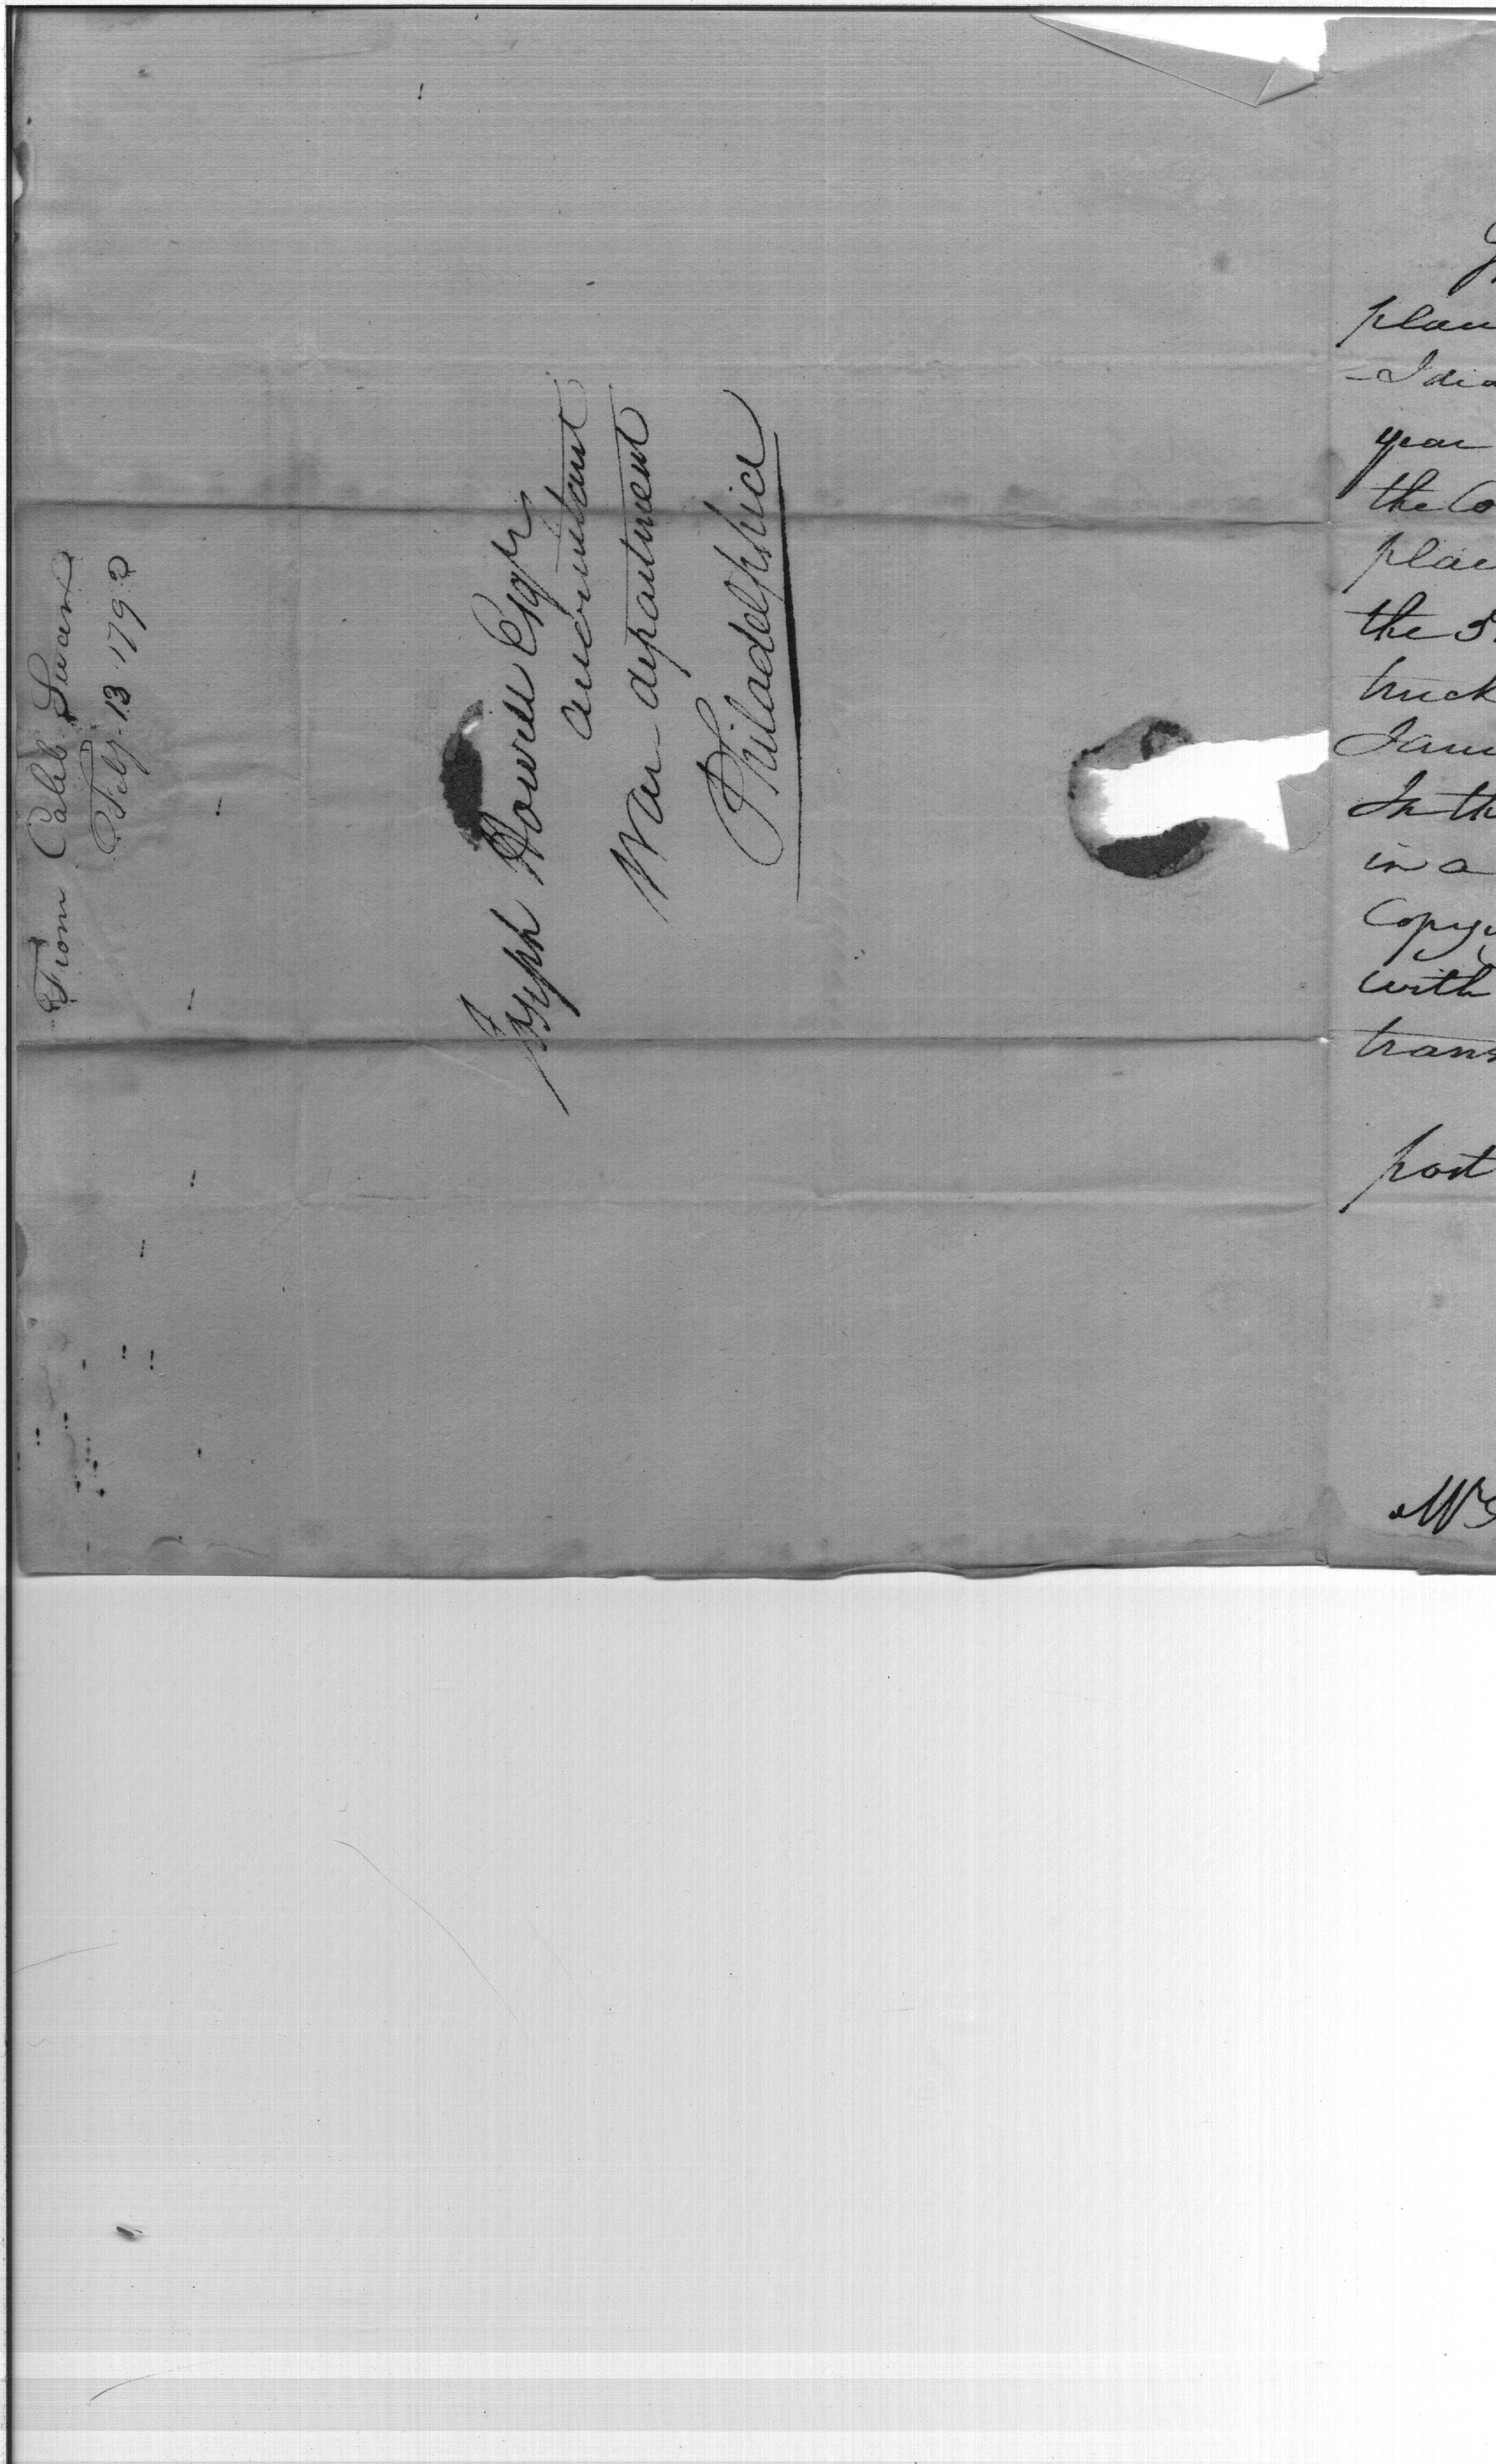 From Caleb Swan
Feby 13 1792
Joseph Howell Esqr
accountant
War department
Philadelphia
plan
year
the Co
plac
the 3
truck
Janu
In th
in a
Copy
with
trans
post